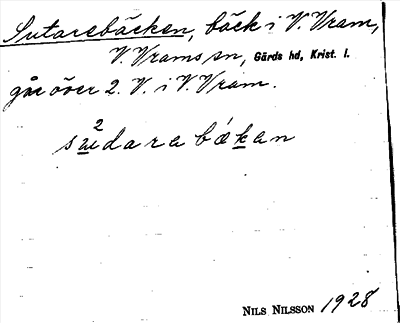 Sutarebäcken, bäck i V. Vram,
V. Vrams sn, Gärds hd, Krist. l.
går över 2. V. i V. Vram.
2
sudarabákan
NILS NILSSON 1928